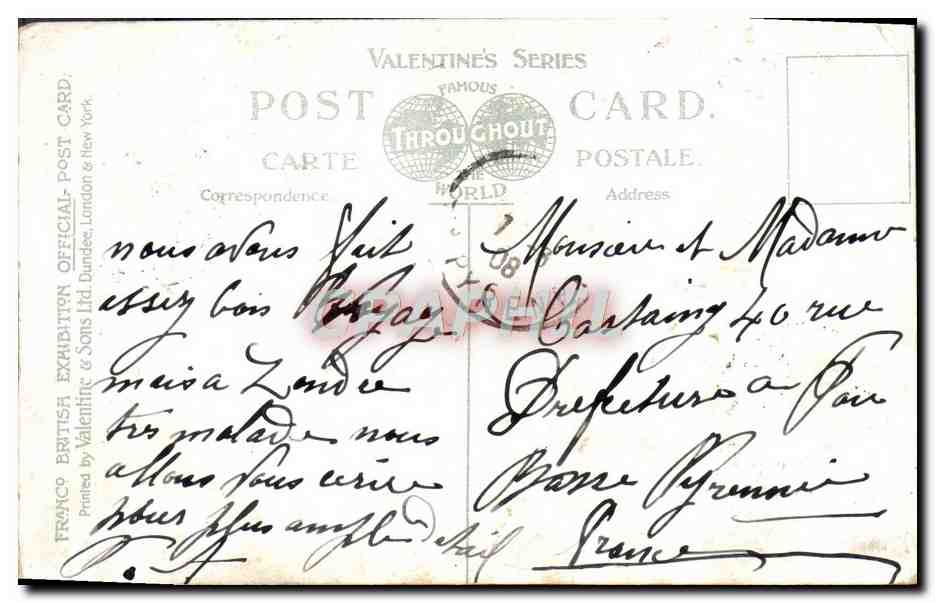 VALENTINE'S SERIES
POST CARD.
FAMOUS THROUGHOUT THE WORLD
CARTE POSTALE.
Correspondence Address
FRANCO BRITISH EXHIBITION OFFICIAL POST CARD.
Printed by Valentine & Sons Ltd. Dundee, London & New York.
nous avons fait
assez bois voyage
mais a Londre
tres malade nous
allons vous ecrire
pour plus ample detail
Monsieur et Madame
Castaing 40 rue
Prefecture a Pau
Basse Pyrennée
France
08
CPAPHIL